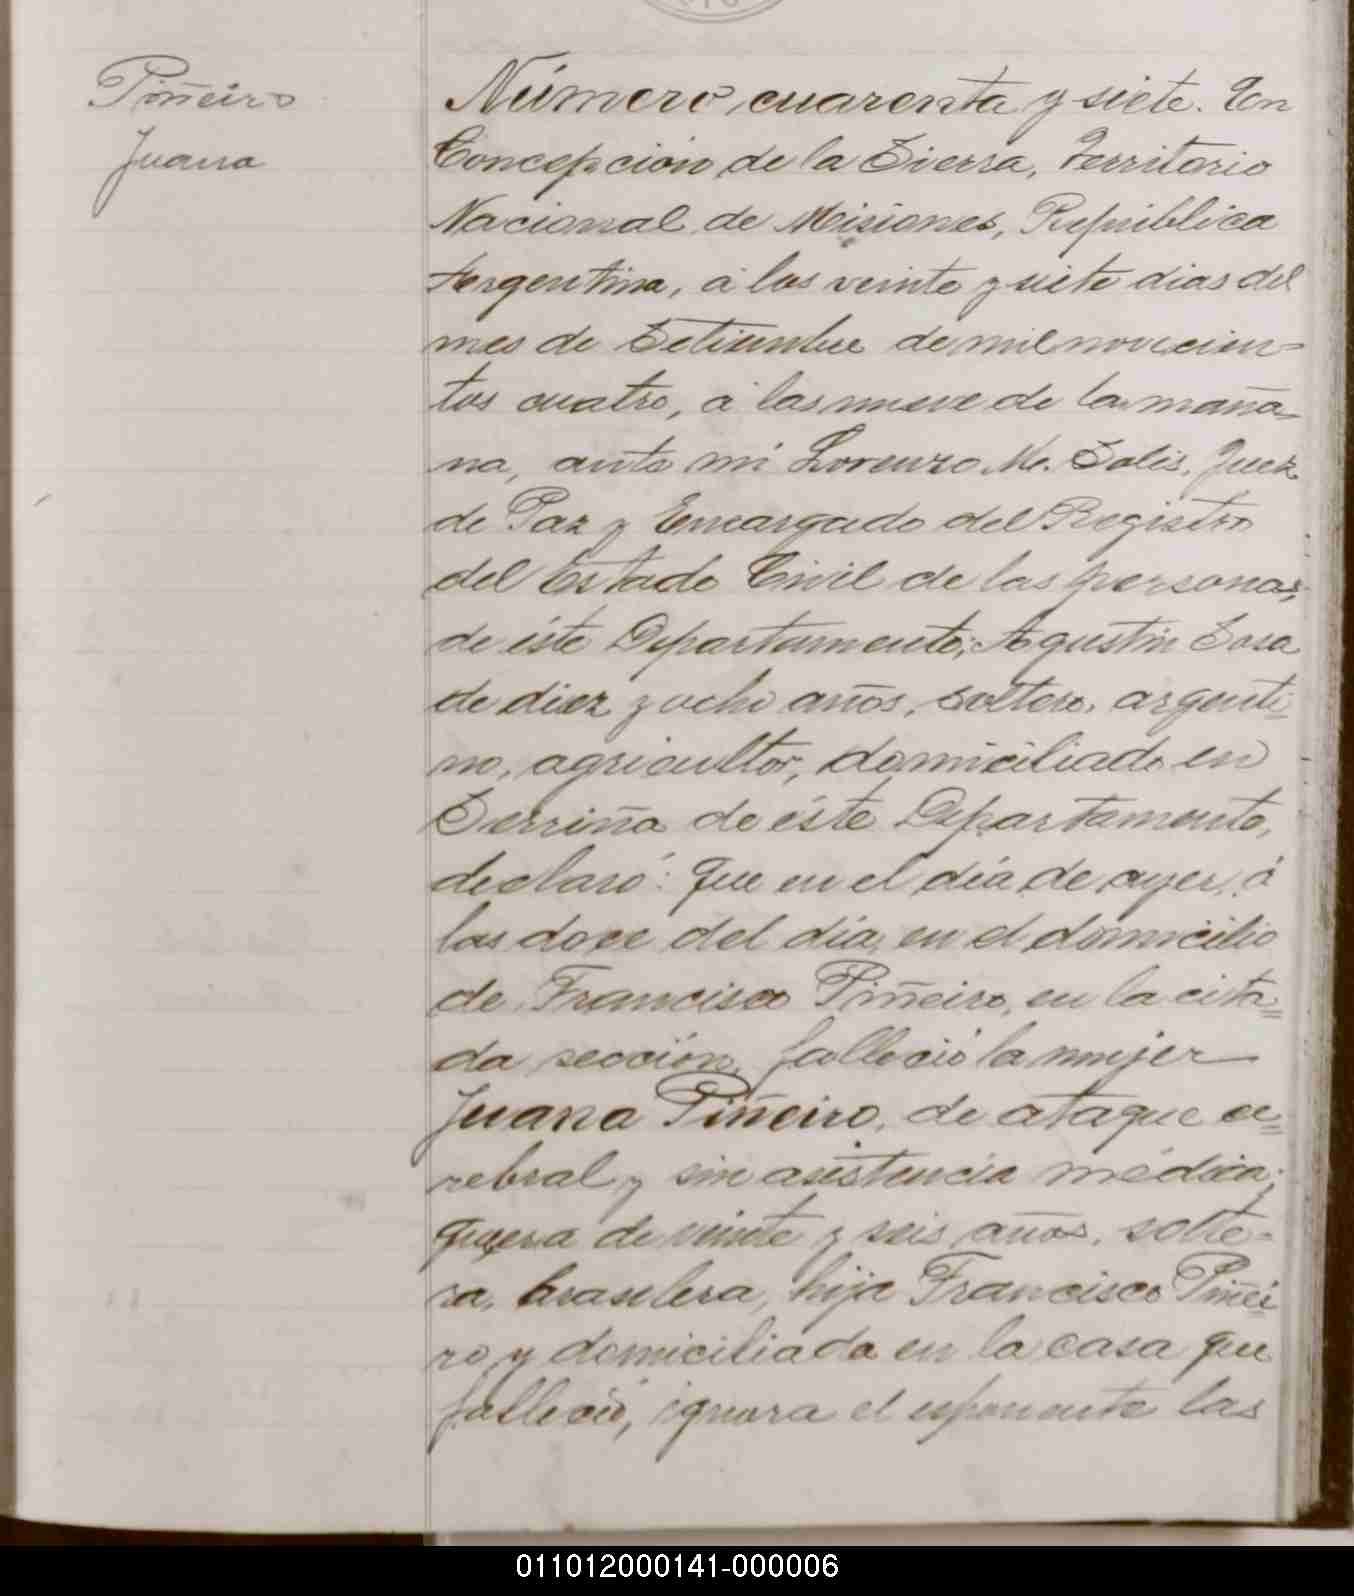 Piñeiro
Juana
Número cuarenta y siete. En
Concepción de la Sierra, Territorio
Nacional de Misiones, República
Argentina, á los veinte y siete dias del
mes de Setiembre de mil novecien-
tos cuatro, á las nueve de la maña-
na, ante mi Lorenzo M. Solis, Juez
de Paz y Encargado del Registro
del Estado Civil de las personas,
de éste Departamento; Agustin Sosa
de diez y ocho años, soltero, argenti-
no, agricultor, domiciliado en
Serriña de éste Departamento,
declaró: Que en el día de ayer, á
las doce del día, en el domicilio
de Francisco Piñeiro, en la cita=
da sección, falleció la mujer
Juana Piñeiro, de ataque ce=
rebral y sin asistencia médica;
que era de veinte y seis años, solte-
ra, brasilera, hija Francisco Piñei
ro, y domiciliada en la casa que
falleció, ignora el esponente las
011012000141-000006